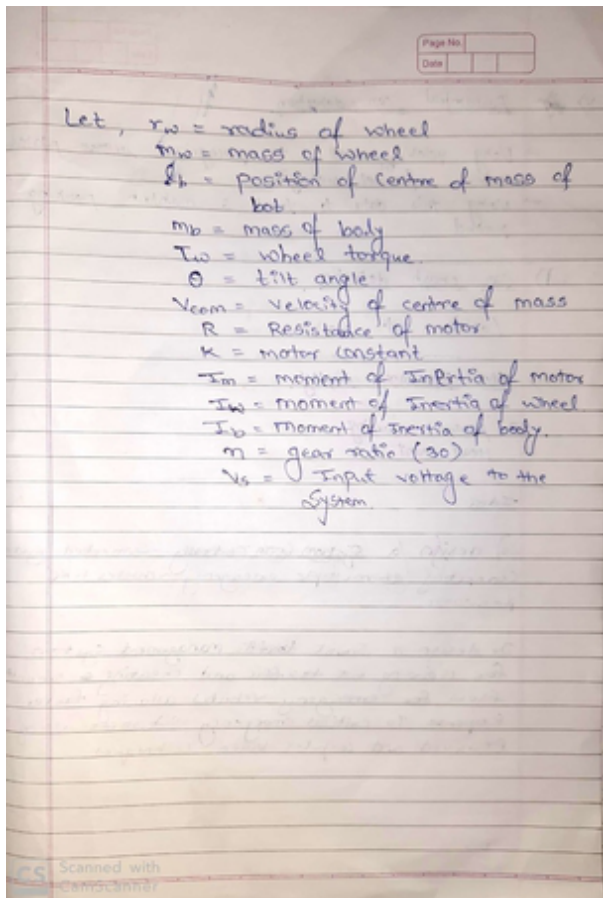 Page No.
Date
Let, r_w = radius of wheel
m_w = mass of wheel
l_b = position of centre of mass of
bot.
m_b = mass of body
T_w = wheel torque.
θ = tilt angle
V_com = velocity of centre of mass
R = Resistance of motor
K = motor constant
I_m = moment of Inertia of motor
I_w = moment of Inertia of wheel
I_b = moment of Inertia of body.
n = gear ratio (30)
V_s = Input voltage to the
System.
CS Scanned with
CamScanner